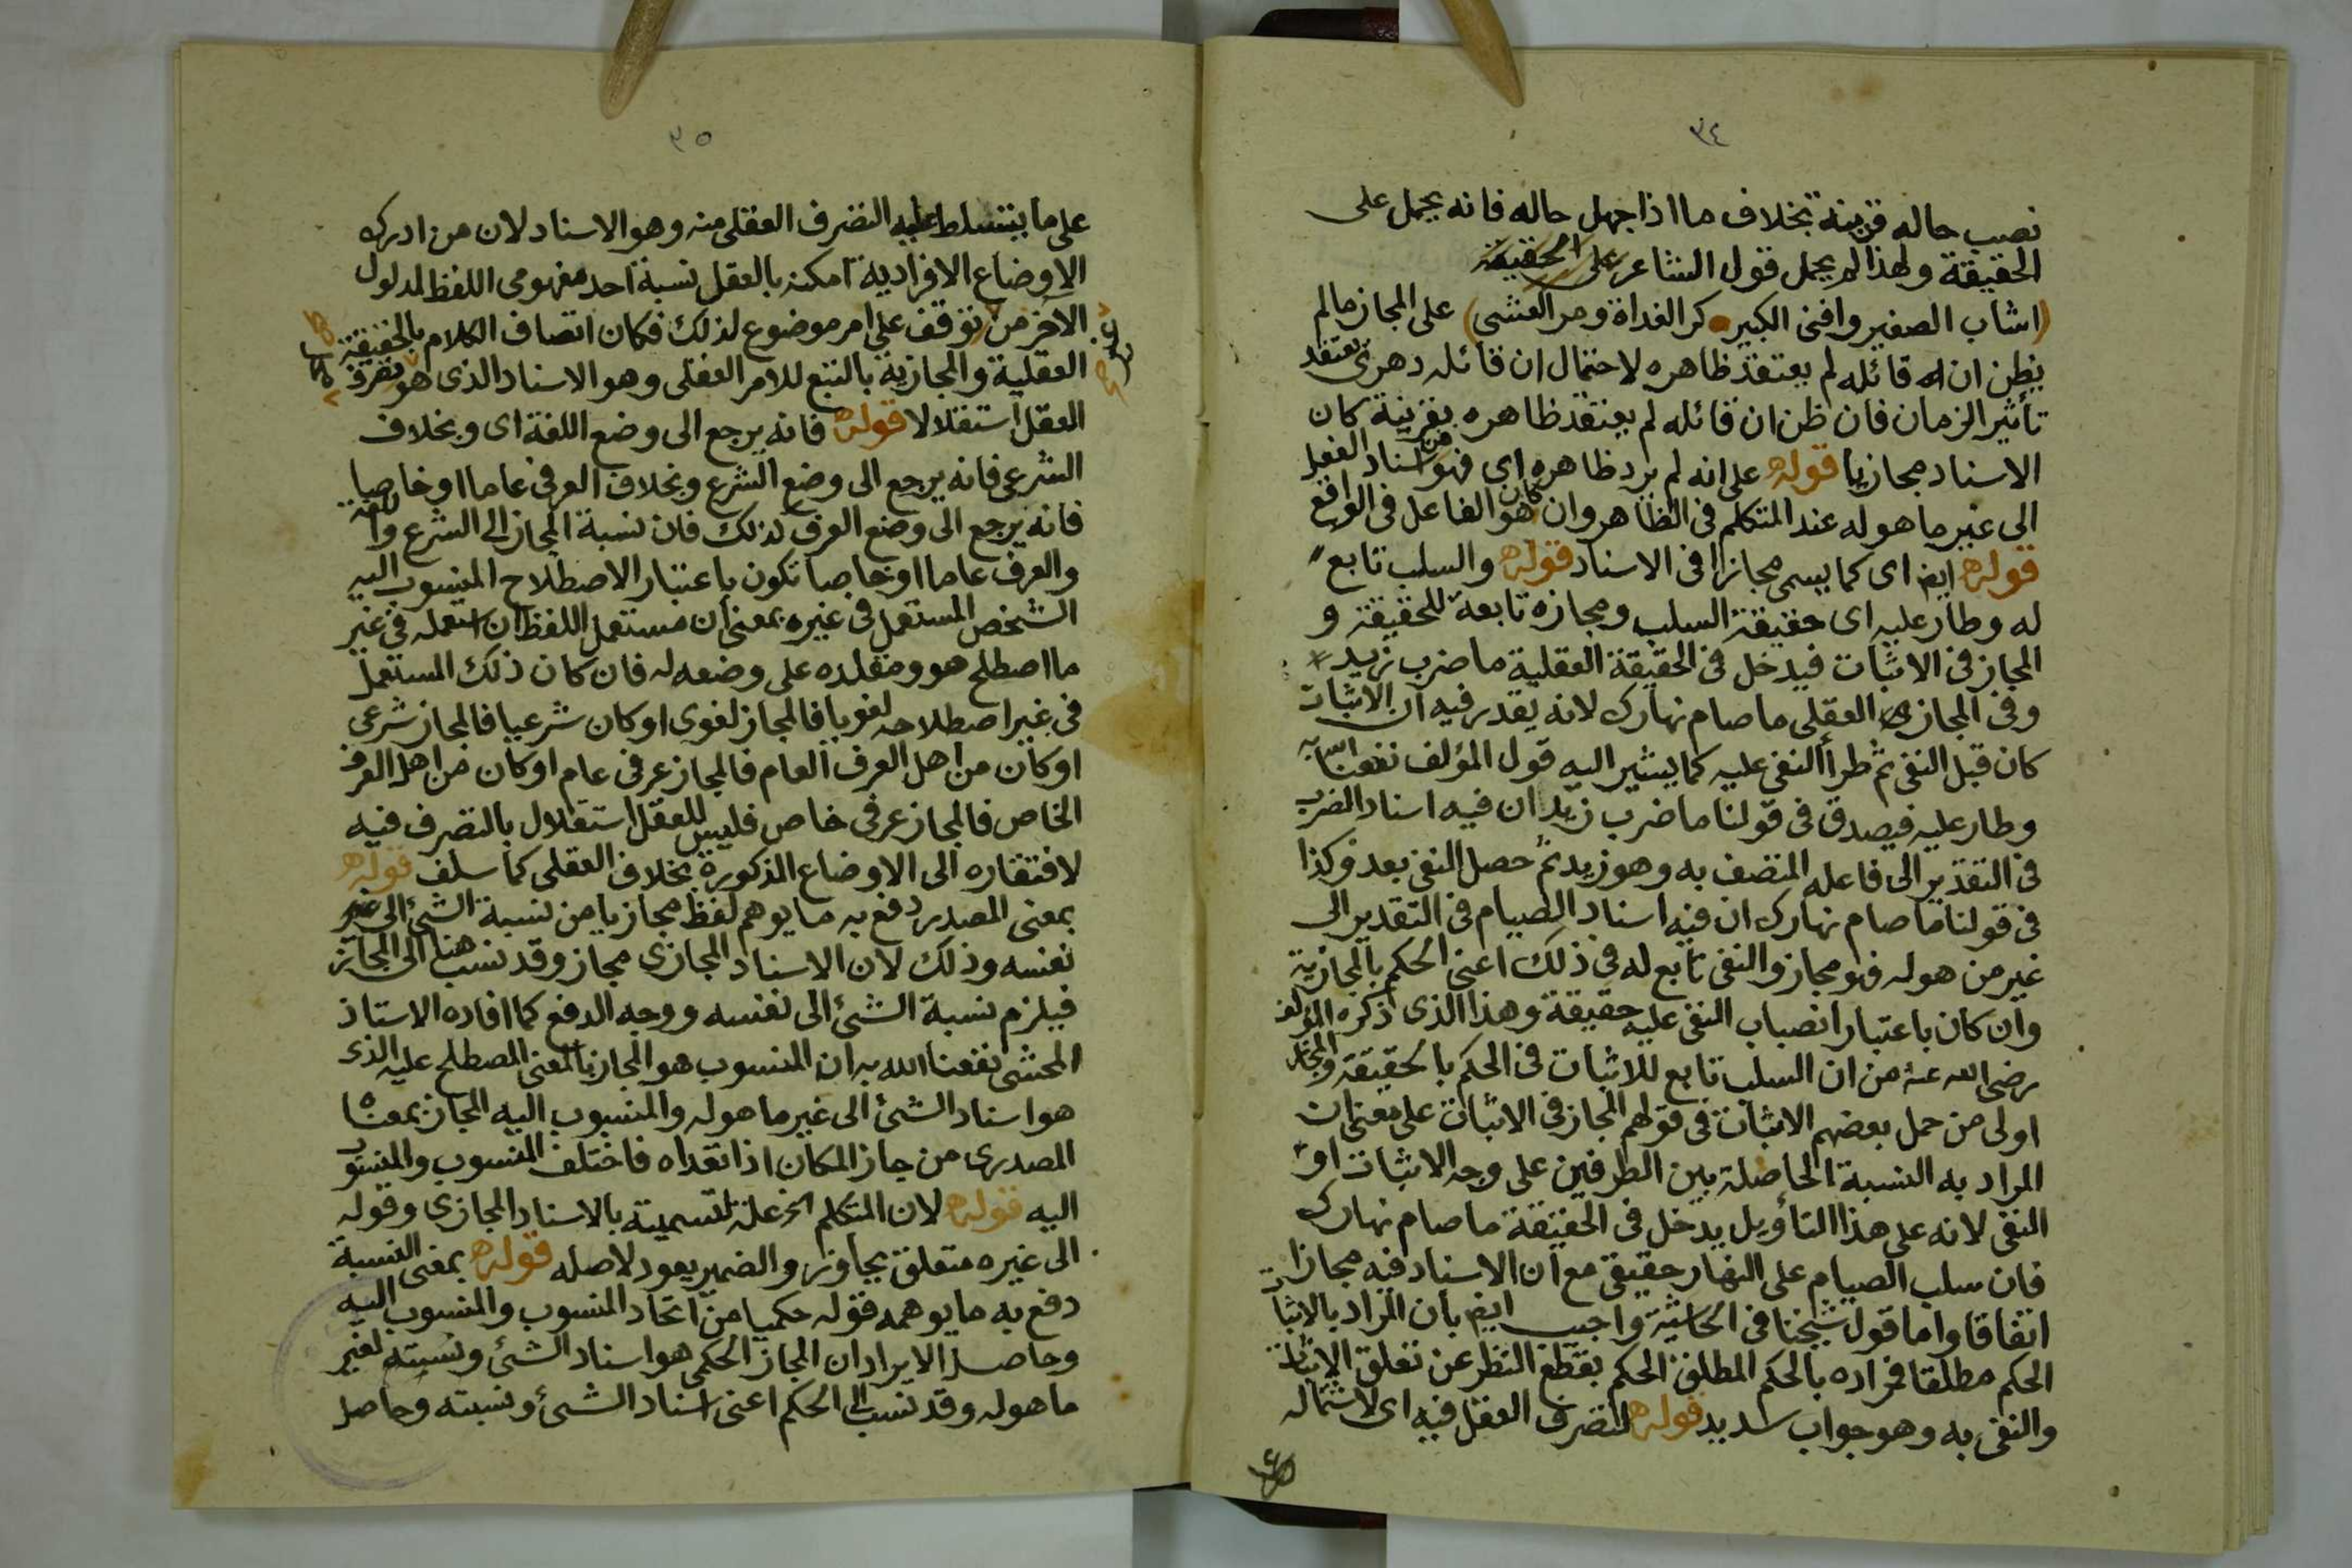 ٣٤
نصب حاله قرينة بخلاف ما اذا جهل حاله فانه يحمل على
الحقيقة ولهذا لم يحمل قول الشاعر على الحقيقة
(اشاب الصغير وافنى الكبير كر الغداة ومر العشى) على المجاز مالم
يظن ان له قائله لم يعتقد ظاهره لاحتمال ان قائله دهرى يعتقد
تأثير الزمان فان ظن ان قائله لم يعتقد ظاهره بقرينة كان
الاسناد مجازيا قوله على انه لم يرد ظاهره اى فهو من اسناد الفعل
الى غير ما هو له عند المتكلم فى الظاهر وان كان هو الفاعل فى الواقع
قوله ايضا اى كما يسمى مجازا فى الاسناد قوله والسلب تابع
له وطار عليه اى حقيقة السلب ومجازه تابعة للحقيقة و
المجاز فى الاثبات فيدخل فى الحقيقة العقلية ما ضرب زيد
وفى المجاز العقلى ما صام نهارك لانه يقدر فيه ان الاثبات
كان قبل النفى ثم طرأ النفى عليه كما يشير اليه قول المؤلف نفعنا الله به
وطار عليه فيصدق فى قولنا ما ضرب زيد ان فيه اسناد الضرب
فى التقدير الى فاعله المتصف به وهو زيد ثم حصل النفى بعد وكذا
فى قولنا ما صام نهارك ان فيه اسناد الصيام فى التقدير الى
غير من هو له فهو مجاز والنفى تابع له فى ذلك اعنى الحكم بالمجازية
وان كان باعتبار انصباب النفى عليه حقيقة وهذا الذى ذكره المؤلف
رضى الله عنه من ان السلب تابع للاثبات فى الحكم بالحقيقة والمجاز
اولى من حمل بعضهم الاثبات فى قولهم المجاز فى الاثبات على معنى ان
المراد به النسبة الحاصلة بين الطرفين على وجه الاثبات او
النفى لانه على هذا التأويل يدخل فى الحقيقة ما صام نهارك
فان سلب الصيام على النهار حقيقى مع ان الاسناد فيه مجازا
اتفاقا واما قول شيخنا فى الحاشية واجيب ايضا بان المراد بالاثبات
الحكم مطلقا فمراده بالحكم المطلق الحكم بقطع النظر عن تعلق الاثبات
والنفى به وهو جواب سديد قوله لتصرف العقل فيه اى لاشتماله
٣٥
على ما يتسلط عليه التصرف العقلى منه وهو الاسناد لان من ادرك
الاوضاع الافرادية امكنه بالعقل نسبة احد مفهومى اللفظ لمدلول
الآخر من توقف على امر موضوع لذلك فكان اتصاف الكلام بالحقيقة
العقلية والمجازية بالتبع للامر العقلى وهو الاسناد الذى هو تصرف
العقل استقلالا قوله فانه يرجع الى وضع اللغة اى وبخلاف
الشرعى فانه يرجع الى وضع الشرع وبخلاف العرفى عاما او خاصا
فانه يرجع الى وضع العرف لذلك فان نسبة المجاز الى الشرع واللغة
والعرف عاما او خاصا تكون باعتبار الاصطلاح المنسوب اليه
الشخص المستعمل فى غيره بمعنى ان مستعمل اللفظ ان استعمله فى غير
ما اصطلح هو ومقلده على وضعه له فان كان ذلك المستعمل
فى غير اصطلاحه لغويا فالمجاز لغوى او كان شرعيا فالمجاز شرعى
او كان من اهل العرف العام فالمجاز عرفى عام او كان من اهل العرف
الخاص فالمجاز عرفى خاص فليس للعقل استقلال بالتصرف فيه
لافتقاره الى الاوضاع المذكورة بخلاف العقلى كما سلف قوله
بمعنى المصدر دفع به ما يوهم لفظ مجازيا من نسبة الشئ الى غير
نفسه وذلك لان الاسناد المجازى مجاز وقد نسب هنا الى المجاز
فيلزم نسبة الشئ الى نفسه ووجه الدفع كما افاده الاستاذ
المحشى نفعنا الله به ان المنسوب هو المجاز بالمعنى المصطلح عليه الذى
هو اسناد الشئ الى غير ما هو له والمنسوب اليه المجاز بمعناه
المصدرى من جاز المكان اذا تعداه فاختلف المنسوب والمنسوب
اليه قوله لان المتكلم الخ علة لتسميته بالاسناد المجازى وقوله
الى غيره متعلق بجاوز والضمير يعود لاصله قوله بمعنى النسبة
دفع به ما يوهمه قوله حكميا من اتحاد المنسوب والمنسوب اليه
وحاصل الايراد ان المجاز الحكمى هو اسناد الشئ ونسبته لغير
ما هو له وقد نسب الى الحكم اعنى اسناد الشئ ونسبته وحاصل